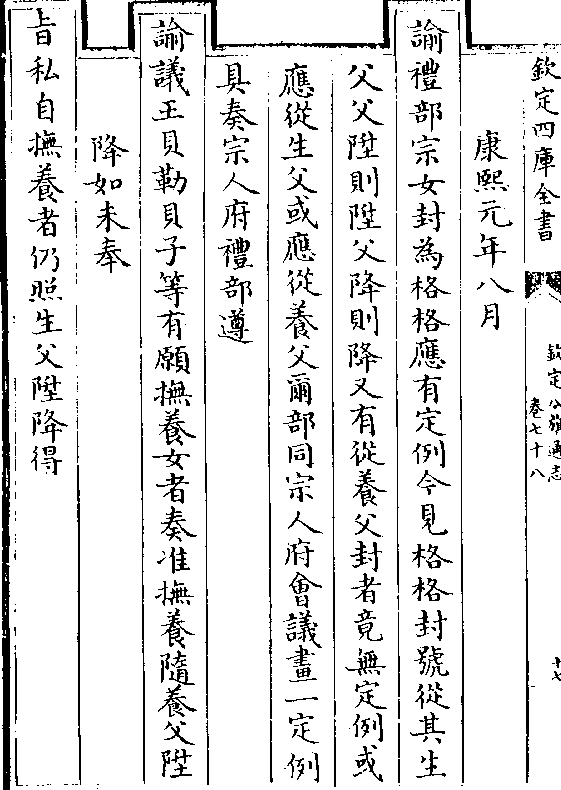 欽定四庫全書
欽定八旗通志
卷七十八
十七
康熙元年八月
諭禮部宗女封為格格應有定例今見格格封號從其生
父父陞則陞父降則降又有從養父封者竟無定例或
應從生父或應從養父爾部同宗人府會議畫一定例
具奏宗人府禮部遵
諭議王貝勒貝子等有願撫養女者奏准撫養隨養父陞
降如未奉
旨私自撫養者仍照生父陞降得